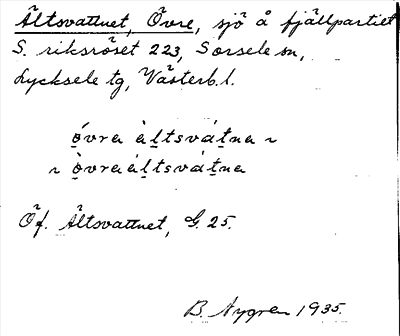 Ältsvattnet, Övre, sjö å fjällpartiet
S. riksröset 223, Sorsele sn,
Lycksele tg, Västerb. l.
ö́vra àl̠tsvát̠na ~
~ ö̀vraál̠tsvát̠na
Öf. Ältsvattnet, G. 25.
B. Nygren 1935.